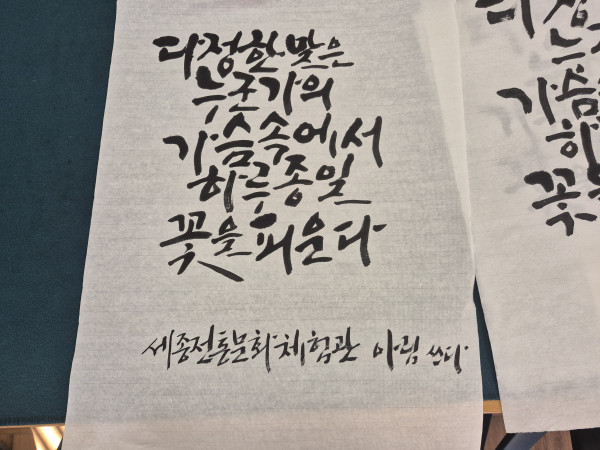 다정한 말은
누군가의
가슴속에서
하루종일
꽃을 피운다
세종전통문화체험관 아림 쓰다
다정
누
가슴
하
꽃을